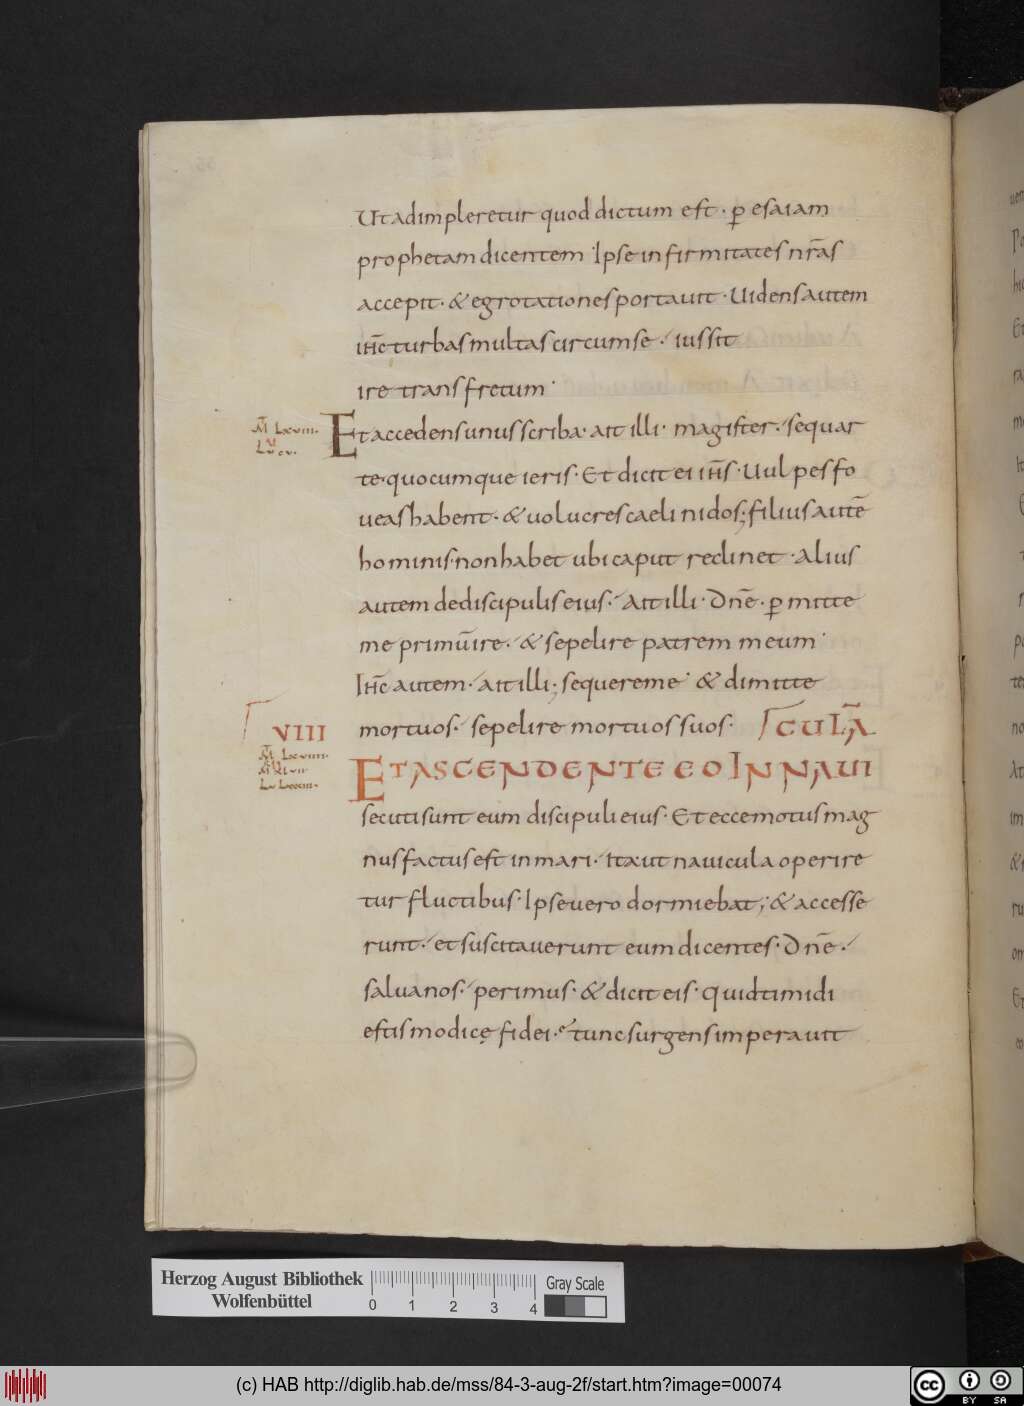 Ut adimpleretur quod dictum est · p̄ esaiam
prophetam dicentem · Ipse infirmitates nr̄as
accepit · & egrotationes portauit · Uidens autem
ih̄c turbas multas circum se · iussit
ire trans fretum ·
M̄ Lxviii · Et accedens unus scriba · ait illi · magister · sequar
Lū cv · te · quocumque ieris · Et dicit ei ih̄s · Uulpes fo
ueas habent · & uolucres caeli nidos ; filius autē
hominis · non habet ubi caput reclinet · alius
autem de discipulis eius · Ait illi · Dn̄e · p̄mitte
me primū ire · & sepelire patrem meum ·
Ih̄c autem · ait illi ; sequere me · & dimitte
VIII mortuos · sepelire mortuos suos · SCU LĀ
M̄ Lxviiii · ET ASCENDENTE EO IN NAUI
secuti sunt eum discipuli eius · Et ecce motus mag
nus factus est in mari · Ita ut nauicula operire
tur fluctibus · Ipse uero dormiebat ; & accesse
runt · et suscitauerunt eum dicentes · Dn̄e ·
salua nos · perimus · & dicit eis · Quid timidi
estis modicę fidei · tunc surgens imperauit
Herzog August Bibliothek
Wolfenbüttel
0 1 2 3 4
Gray Scale
(c) HAB http://diglib.hab.de/mss/84-3-aug-2f/start.htm?image=00074
cc BY SA